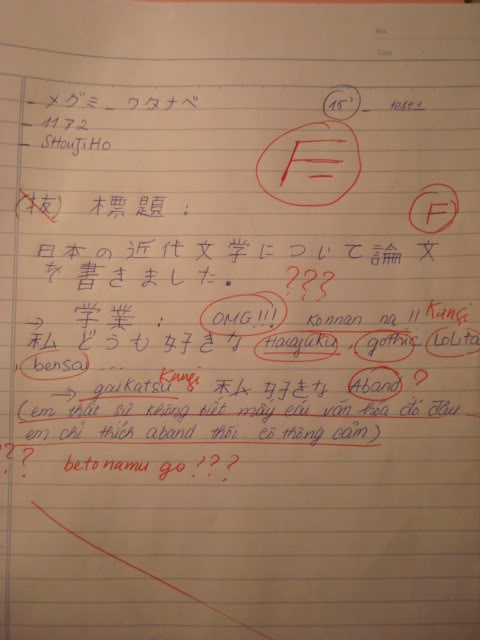 No.
Date
- メグミ_ワタナベ 15' _ test 1
- 11.7.2
- SHOUJIHO
F
(抜) 標題: F
日本の近代文学について論文
を書きました。 ???
→ 学業: OMG!!! Konnan na!! Kangi
私どうも好きな Harajuku, gothic, Lolita
, bensai ....
→ gaikatsu Kangi 私好きな Aband ?
(em thật sự không biết mấy cái văn hóa đó đâu
em chỉ thích aband thôi cô thông cảm)
??? betonamu go ???